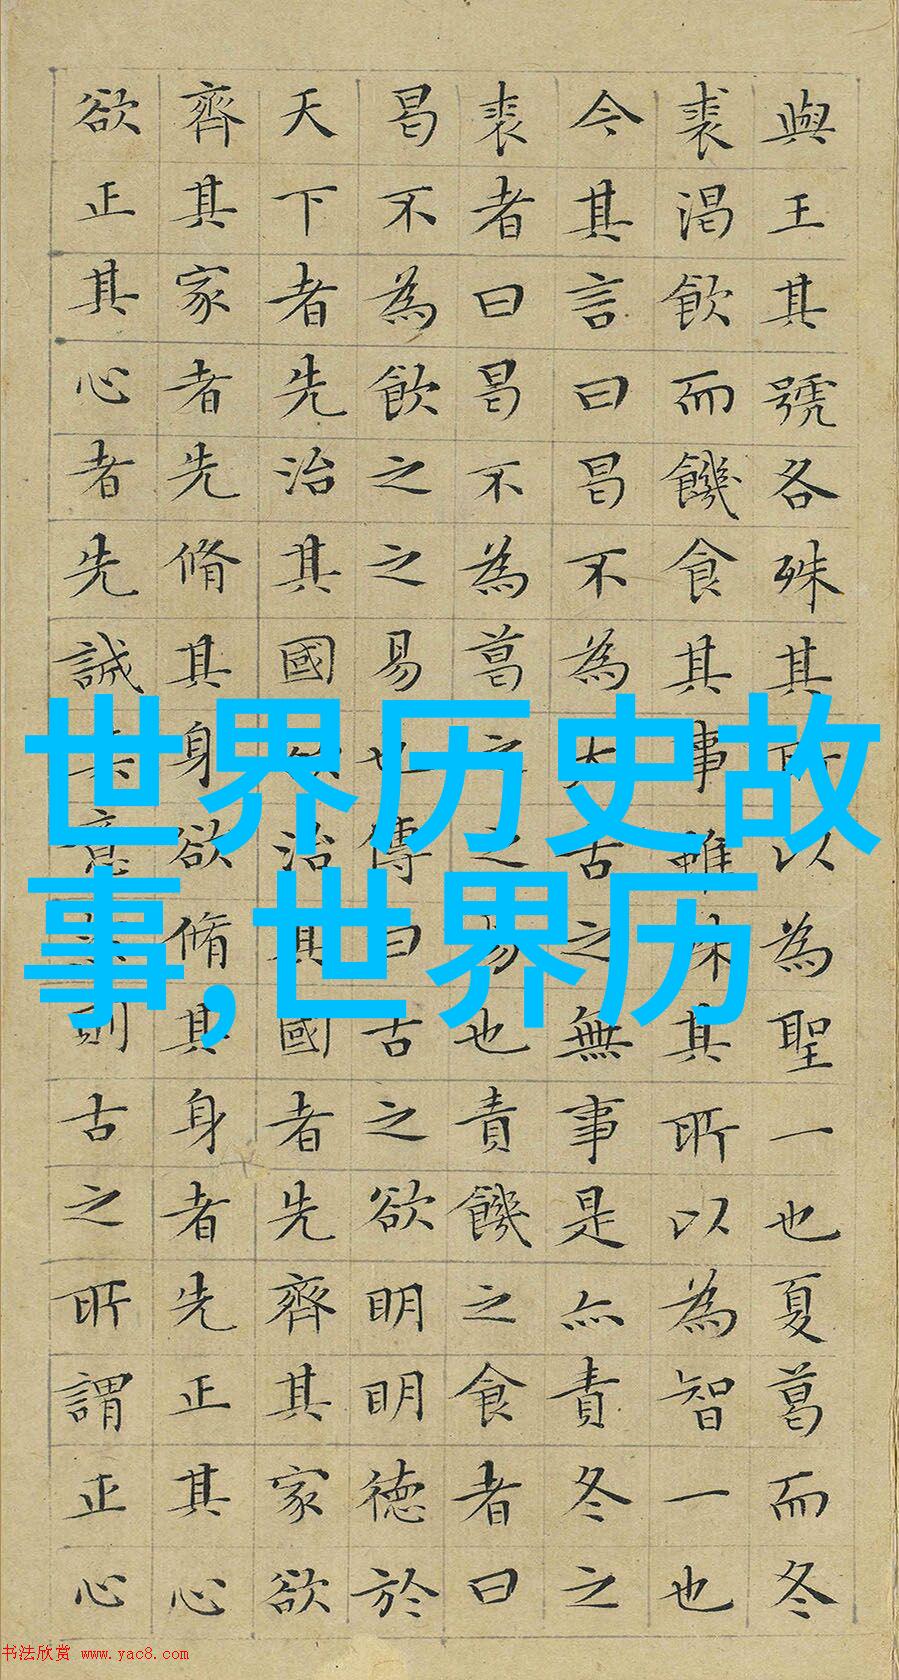 與王其號各殊其所以為聖一也夏葛而冬
裘渴飲而饑食其事雖殊其所以為智一也
今其言曰曷不為太古之無事是亦責冬之
裘者曰曷不為葛之之易也責饑之食者曰
曷不為飲之之易也傳曰古之欲明明德於
天下者先治其國欲治其國者先齊其家欲
齊其家者先脩其身欲脩其身者先正其心
欲正其心者先誠其意然則古之所謂正心
世界历史故
事,世界历
书法欣赏 www.yac8.com